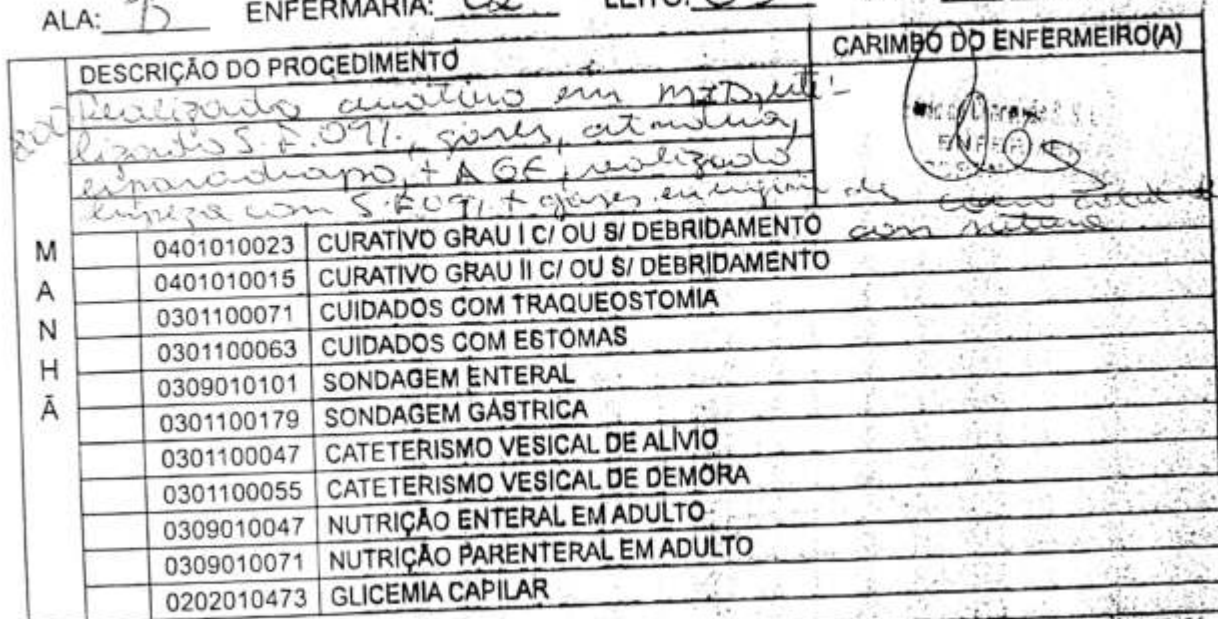 ALA: B ENFERMARIA: 02 LEITO:
DESCRIÇÃO DO PROCEDIMENTO CARIMBO DO ENFERMEIRO(A)
Realizado curativo em MID, uti-
lizando S.F. 0,9%, gazes, atadura,
esparadrapo, + AGE, realizado
limpeza com S.F 0,9% + gazes em região de
com sutura.
MANHÃ
0401010023 CURATIVO GRAU I C/ OU S/ DEBRIDAMENTO
0401010015 CURATIVO GRAU II C/ OU S/ DEBRIDAMENTO
0301100071 CUIDADOS COM TRAQUEOSTOMIA
0301100063 CUIDADOS COM ESTOMAS
0309010101 SONDAGEM ENTERAL
0301100179 SONDAGEM GÁSTRICA
0301100047 CATETERISMO VESICAL DE ALÍVIO
0301100055 CATETERISMO VESICAL DE DEMORA
0309010047 NUTRIÇÃO ENTERAL EM ADULTO
0309010071 NUTRIÇÃO PARENTERAL EM ADULTO
0202010473 GLICEMIA CAPILAR